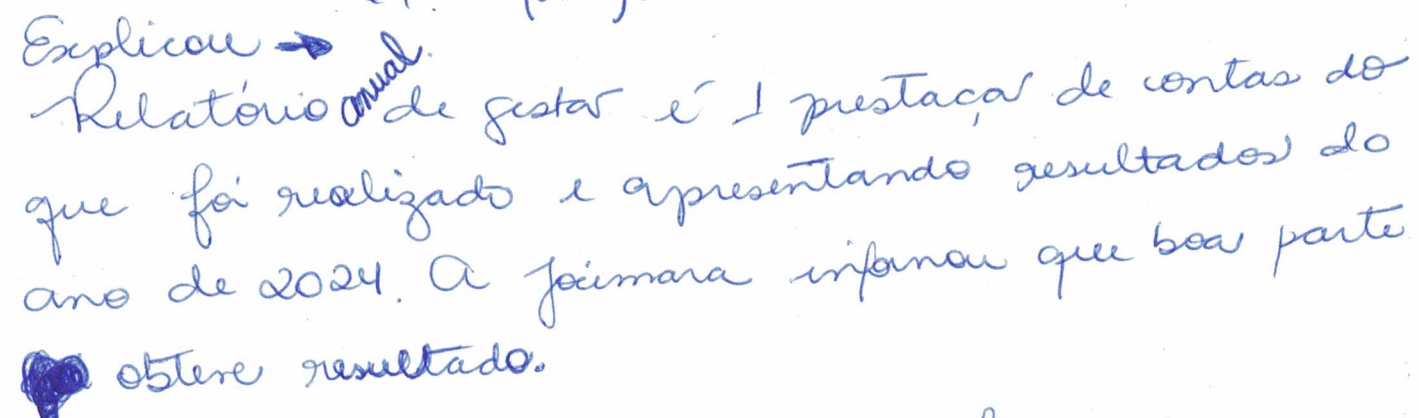 Explicou →
Relatório anual de gestão é 1 prestação de contas do
que foi realizado e apresentando resultados do
ano de 2024. A Joimara informou que boa parte
obteve resultado.